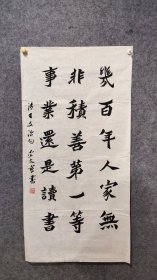 幾百年人家無
非積善第一等
事業還是讀書